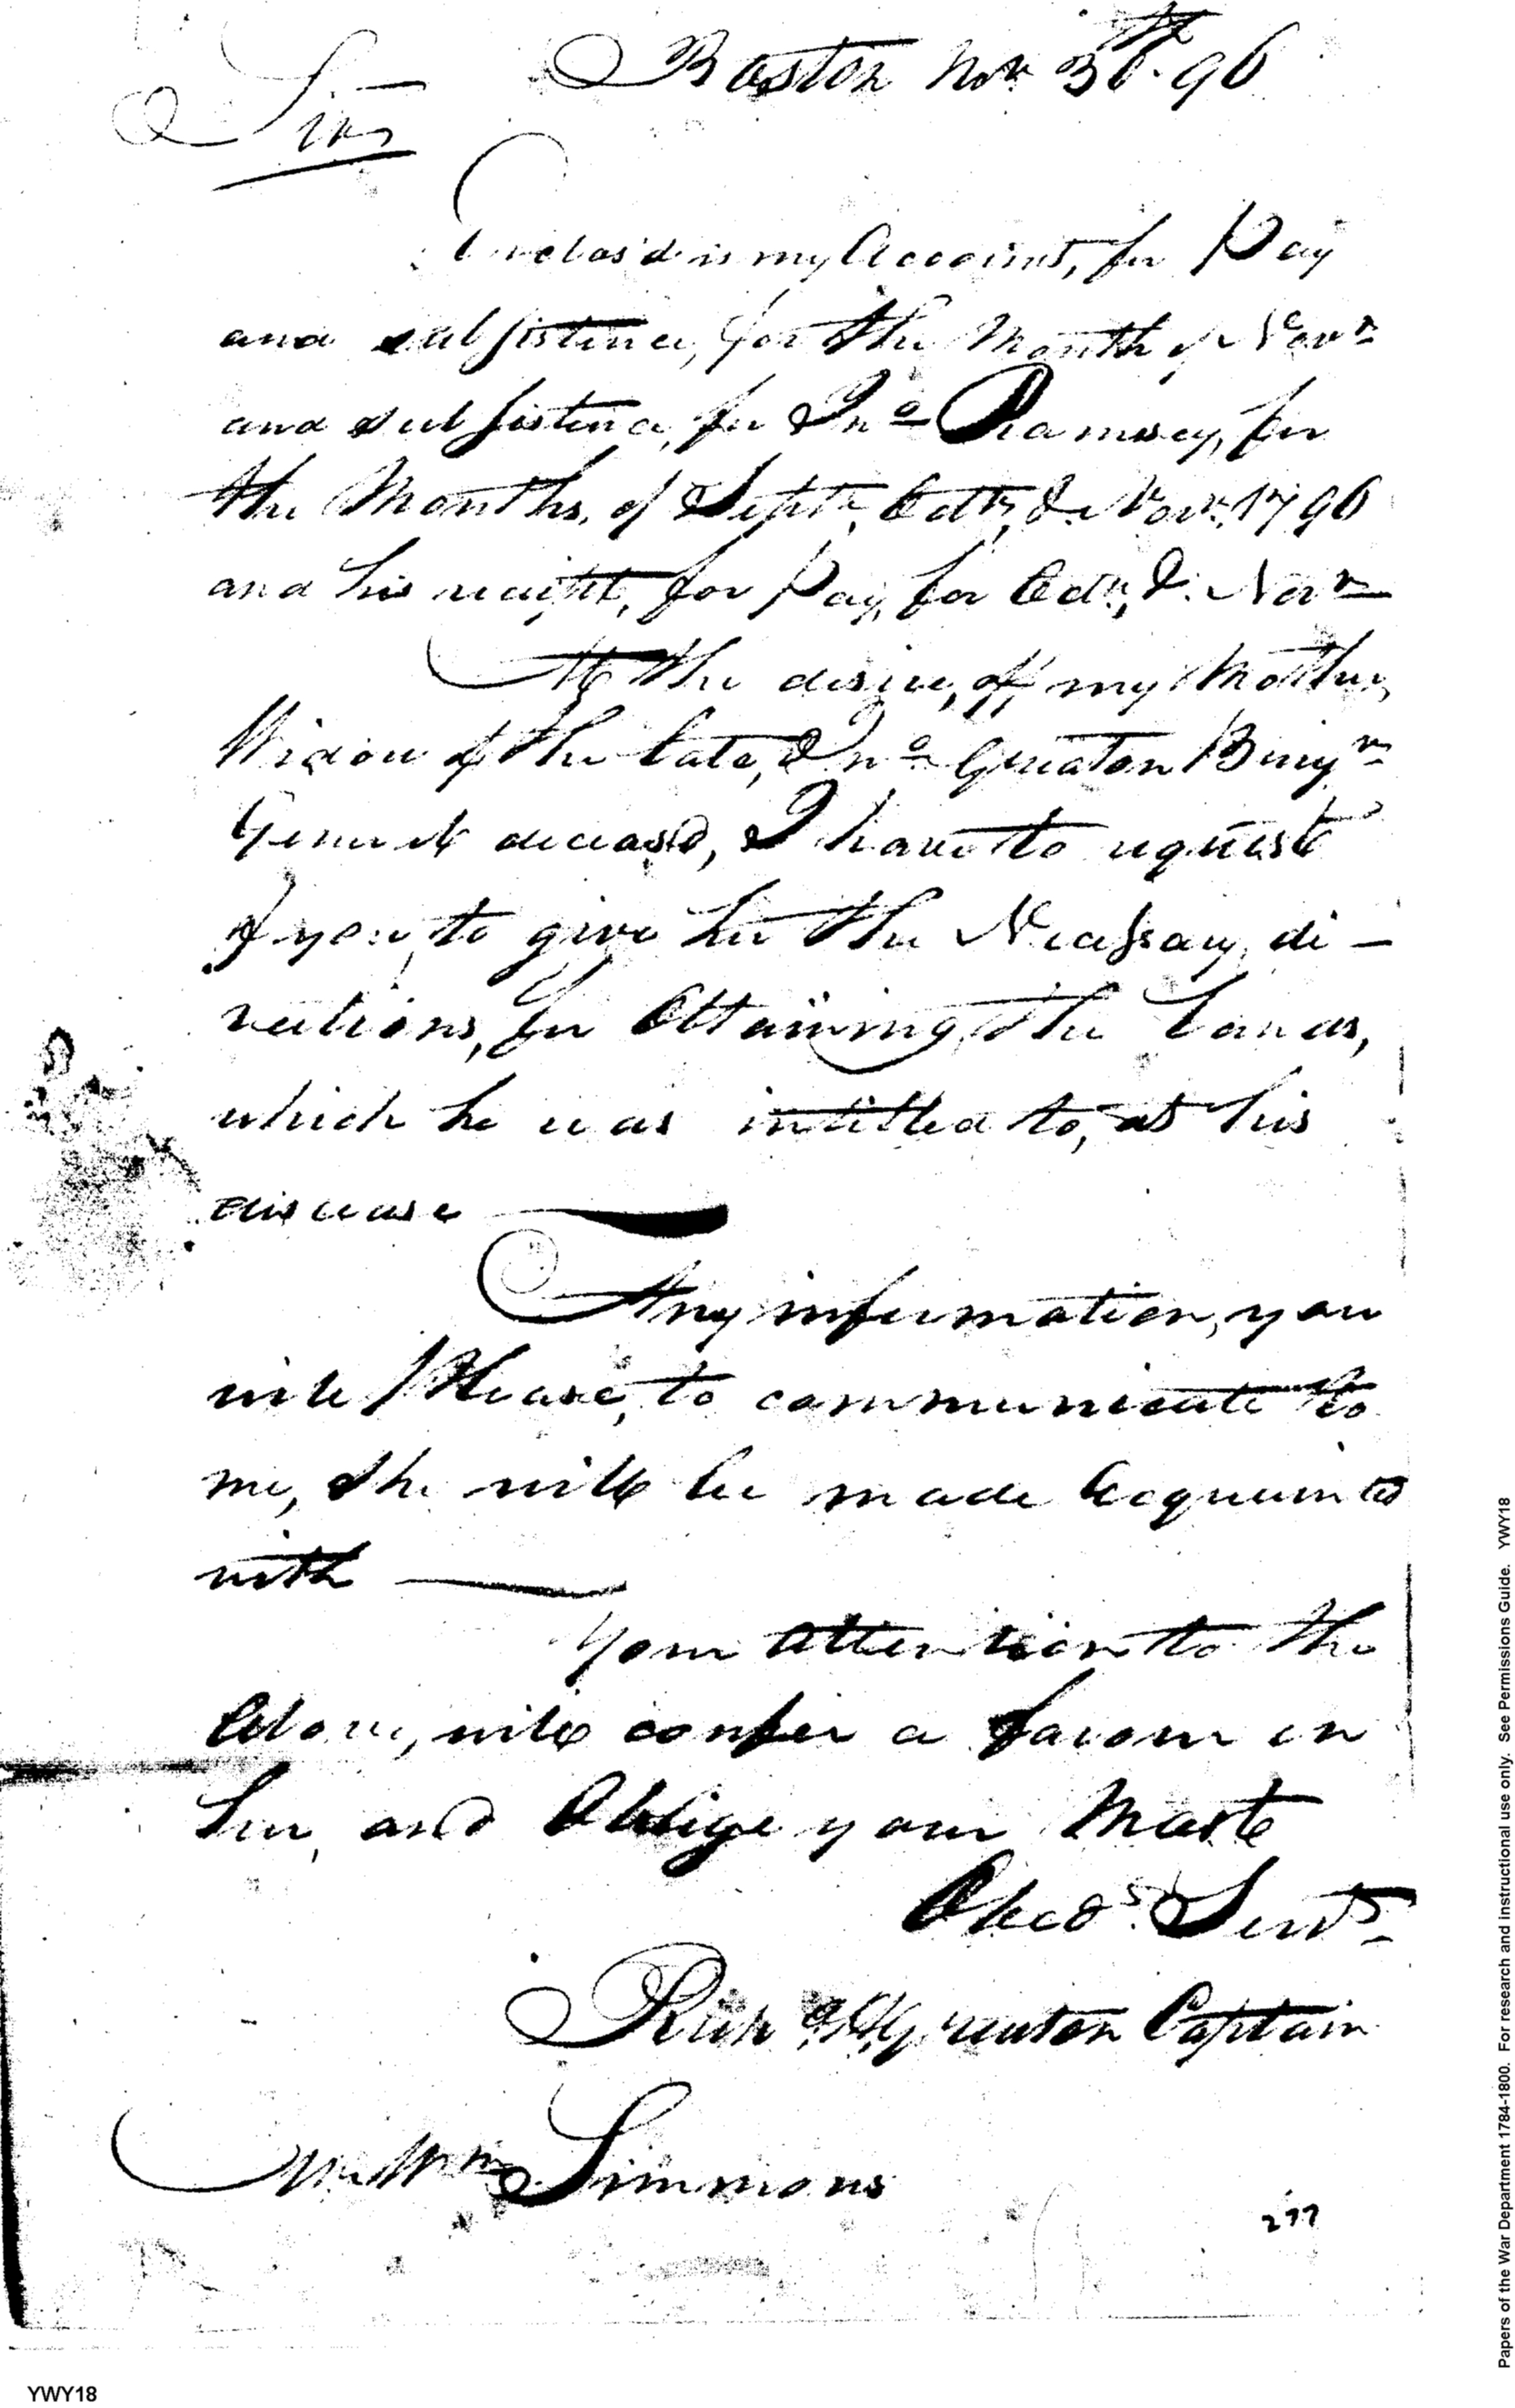 Boston Nov 30th. 96
Sir
Enclos'd is my Account, for Pay
and subsistence, for the Month of Novr
and subsistence, for Jno Ramsey, for
the Months, of Septr, Octr, & Novr. 1796
and his receipt, for Pay, for Octr, & Novr
At the desire, of, my Mother,
Widow of the late, Jno Greaton
Generall deceasd, I have to request
of you, to give her the Necessary di-
rections, for Obtaining, the Lands,
which he was intitled to, at his
discease
Any information, you
will Please, to communicate to
me, she will be made Acquainted
with
Your attention to the
Above, will confer a favour on
her, and Oblige your Most
Obedt. Servt
Richd H, Greaton Captain
Mr Wm Simmons
277
Papers of the War Department 1784-1800. For research and instructional use only. See Permissions Guide. YWY18
YWY18